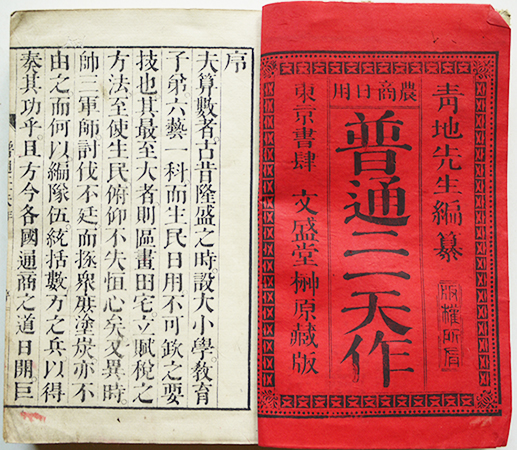 農商日用
青地先生編纂
版權所有
普通二一天作
東京書肆 文盛堂榊原藏版
序
大算數者古昔隆盛之時設大小學敎育
子弟六藝一科而生民日用不可欽之要
技也其最至大者則區畫田宅立賦稅之
方法至使生民俯仰不失恒心矣又異時
師三軍師討伐不廷而拯衆庶塗炭亦不
由之而何以編隊伍統括數万之兵以得
奏其功乎且方今各國通商之道日開巨